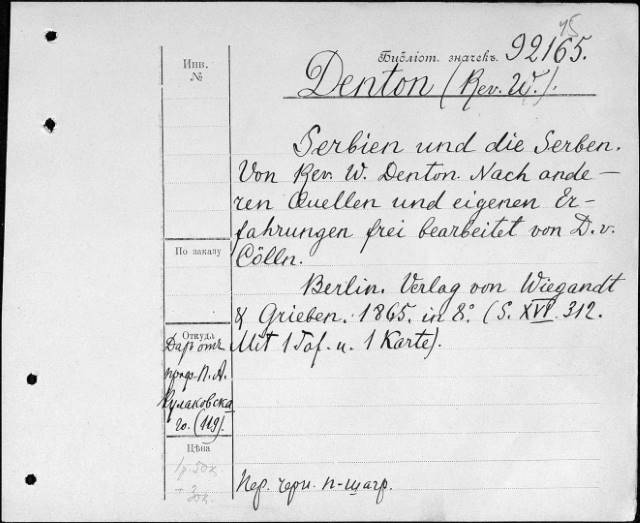 75
Библіот. значекъ. 92165.
Инв.
№
Denton (Rev. W.).
Serbien und die Serben.
Von Rev. W. Denton. Nach ande-
ren Quellen und eigenen Er-
fahrungen frei bearbeitet von D. v.
Cölln.
По заказу
Berlin. Verlag von Wiegandt
& Grieben. 1865. in 8.° (S. XVI. 312.
Mit 1 Taf. u. 1 Karte).
Откуда
Даръ отъ
проф. П. А.
Кулаковска
го. (119).
Цѣна
1 р. 50 к.
Пер. черн. п-шагр.